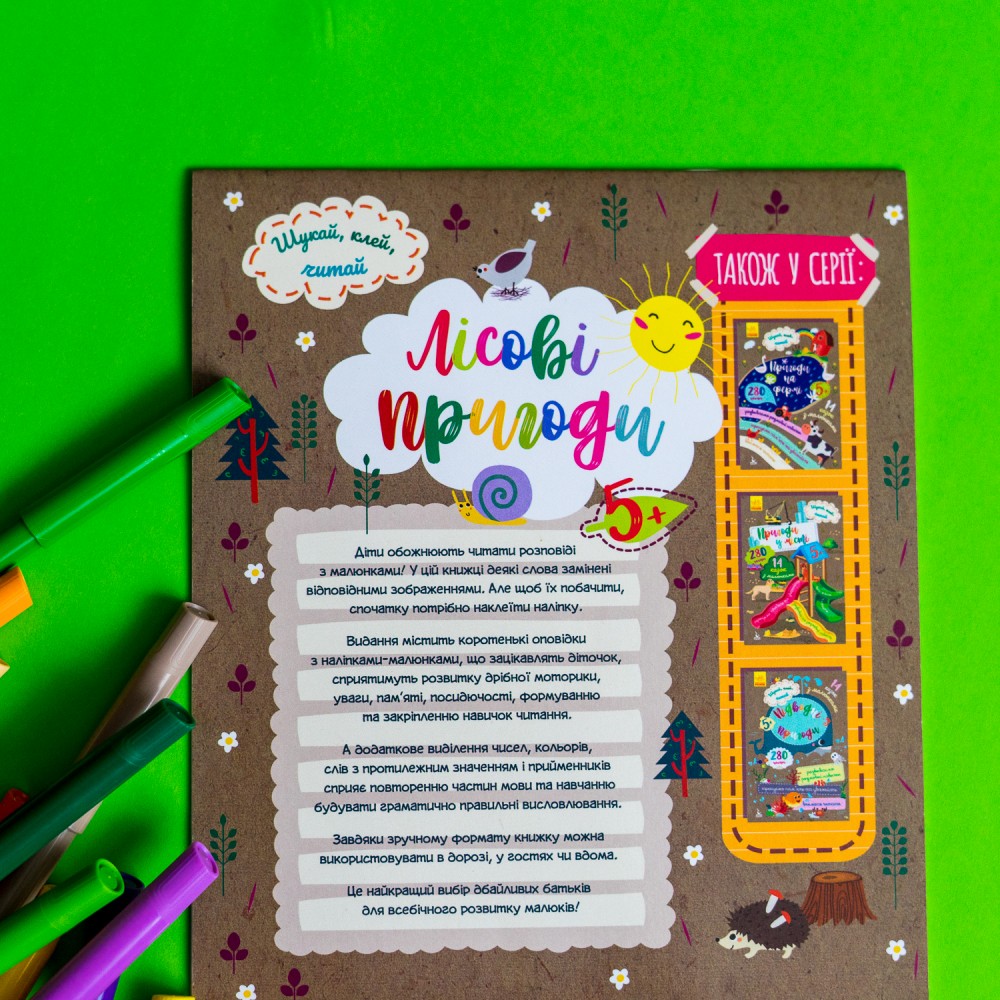 Шукай, клей,
читай
Лісові
пригоди
5+
Діти обожнюють читати розповіді
з малюнками! У цій книжці деякі слова замінені
відповідними зображеннями. Але щоб їх побачити,
спочатку потрібно наклеїти наліпку.
Видання містить коротенькі оповідки
з наліпками-малюнками, що зацікавлять діточок,
сприятимуть розвитку дрібної моторики,
уваги, пам'яті, посидючості, формуванню
та закріпленню навичок читання.
А додаткове виділення чисел, кольорів,
слів з протилежним значенням і прийменників
сприяє повторенню частин мови та навчанню
будувати граматично правильні висловлювання.
Завдяки зручному формату книжку можна
використовувати в дорозі, у гостях чи вдома.
Це найкращий вибір дбайливих батьків
для всебічного розвитку малюків!
ТАКОЖ У СЕРІЇ:
Пригоди
на
фермі
280
5+
Пригоди
у місті
280
5+
14
Підводні
пригоди
5+
280